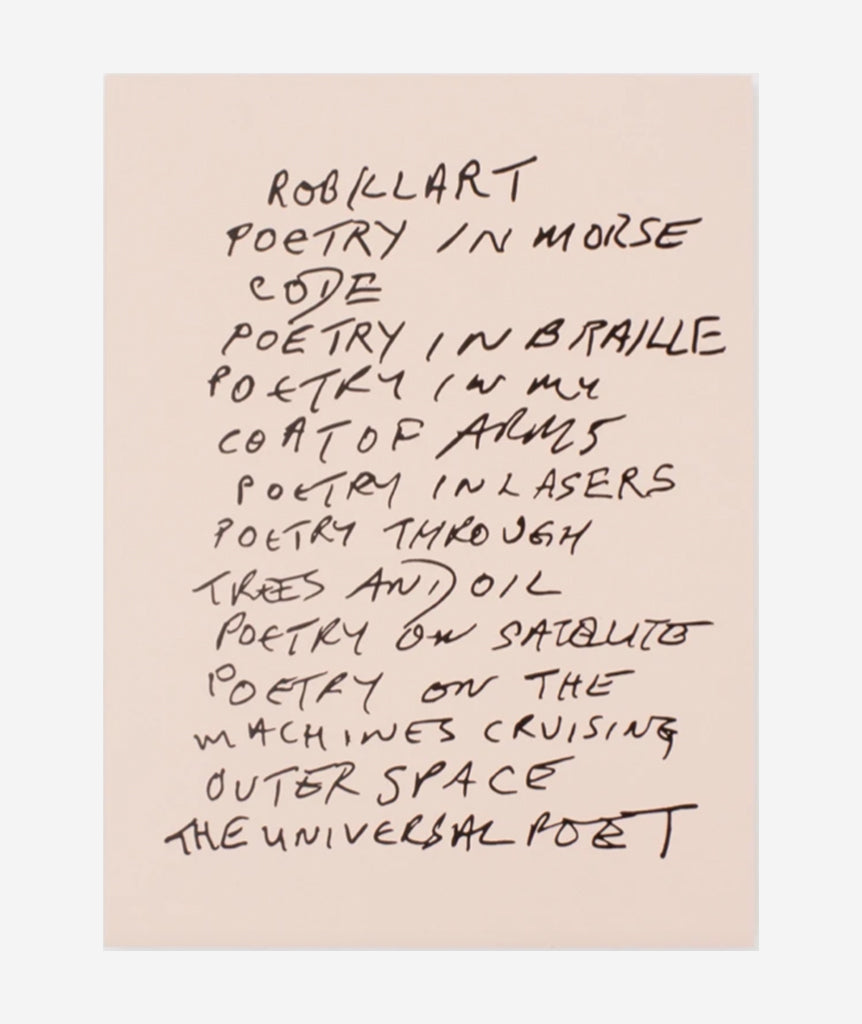 ROBILLART
POETRY IN MORSE
CODE
POETRY IN BRAILLE
POETRY IN MY
COAT OF ARMS
POETRY IN LASERS
POETRY THROUGH
TREES AND OIL
POETRY ON SATELLITE
POETRY ON THE
MACHINES CRUISING
OUTER SPACE
THE UNIVERSAL POET